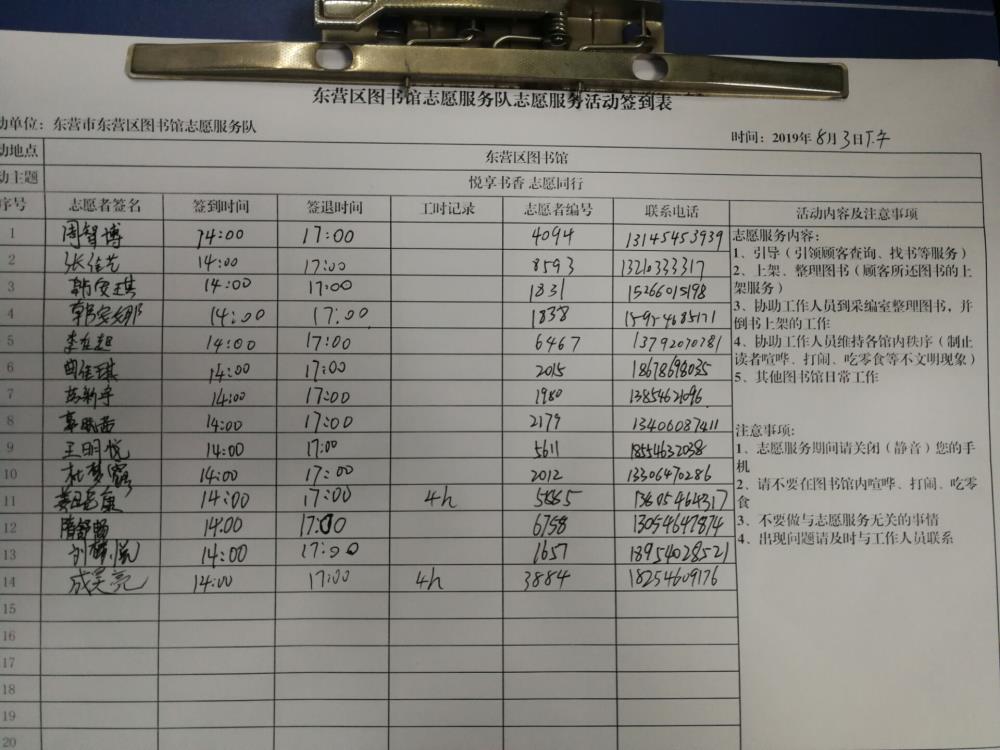 东营区图书馆志愿服务队志愿服务活动签到表
动单位：东营市东营区图书馆志愿服务队
时间：2019年8月3日下午
动地点 东营区图书馆
动主题 悦享书香 志愿同行
序号 志愿者签名 签到时间 签退时间 工时记录 志愿者编号 联系电话 活动内容及注意事项
1 周智博 14:00 17:00 4094 13145453939
2 14:00 17:00 8593 13210333317
3 14:00 17:00 1831 15266015198
4 14:00 17:00 1838 15954685171
5 14:00 17:00 6467 13792070781
6 14:00 17:00 2015 18678698035
7 14:00 17:00 1980 13854621096
8 14:00 17:00 2179 13406087411
9 王明悦 14:00 17:00 5611 18554632038
10 杜梦露 14:00 17:00 2012 13306470286
11 14:00 17:00 4h 5865 13605464317
12 隋舒畅 14:00 17:00 6758 13054647874
13 14:00 17:00 1657 18954028521
14 成昊亮 14:00 17:00 4h 3884 18254609176
15
16
17
18
19
20
志愿服务内容：
1、引导（引领顾客查询、找书等服务）
2、上架、整理图书（顾客所还图书的上
架服务）
3、协助工作人员到采编室整理图书，并
倒书上架的工作
4、协助工作人员维持各馆内秩序（制止
读者喧哗、打闹、吃零食等不文明现象）
5、其他图书馆日常工作
注意事项：
1、志愿服务期间请关闭（静音）您的手
机
2、请不要在图书馆内喧哗、打闹、吃零
食
3、不要做与志愿服务无关的事情
4、出现问题请及时与工作人员联系